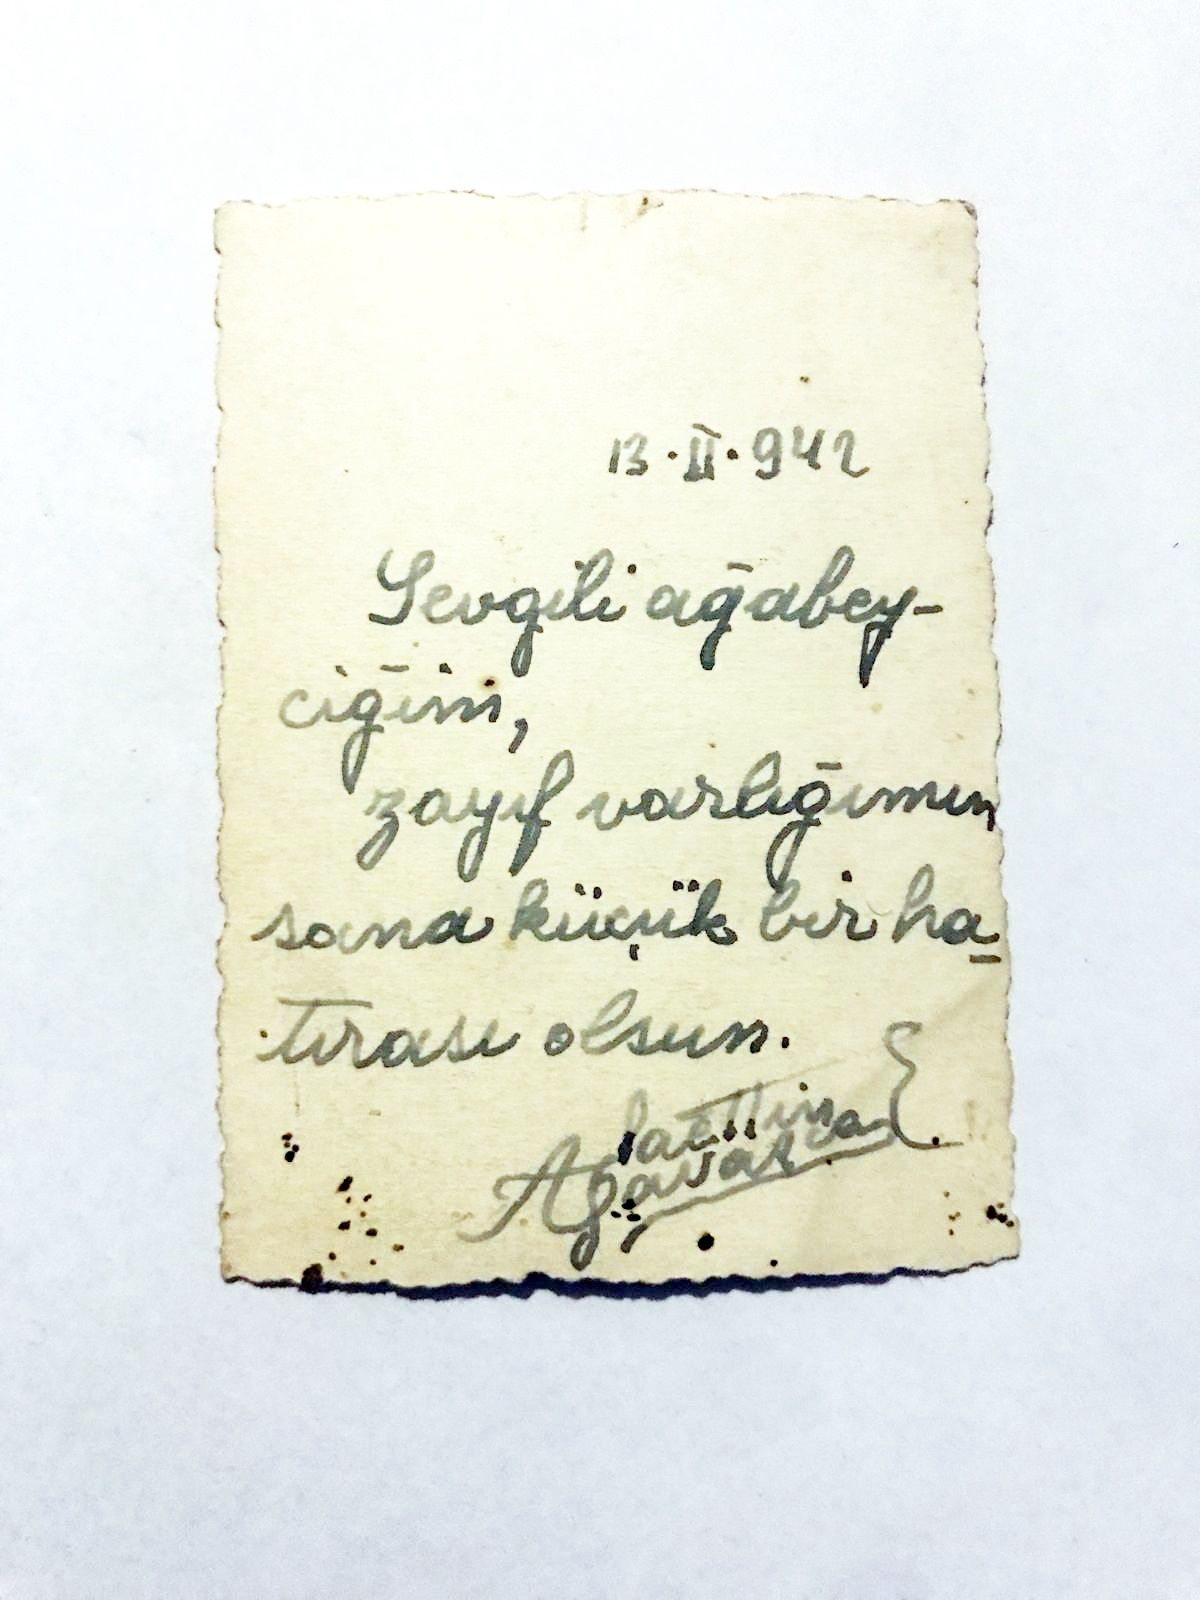 13.II.942
Sevgili ağabey-
ciğim,
zayıf varlığımın
sana küçük bir ha
tırası olsun.